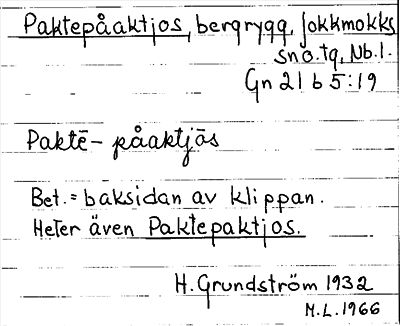 Paktepåaktjos, bergrygg, Jokkmokks
sn o. tg, Nb. l.
Gn 21 b 5:19
Paktē- påaktjās
Bet. = baksidan av klippan.
Heter även Paktepaktjos.
H. Grundström 1932
M.L. 1966